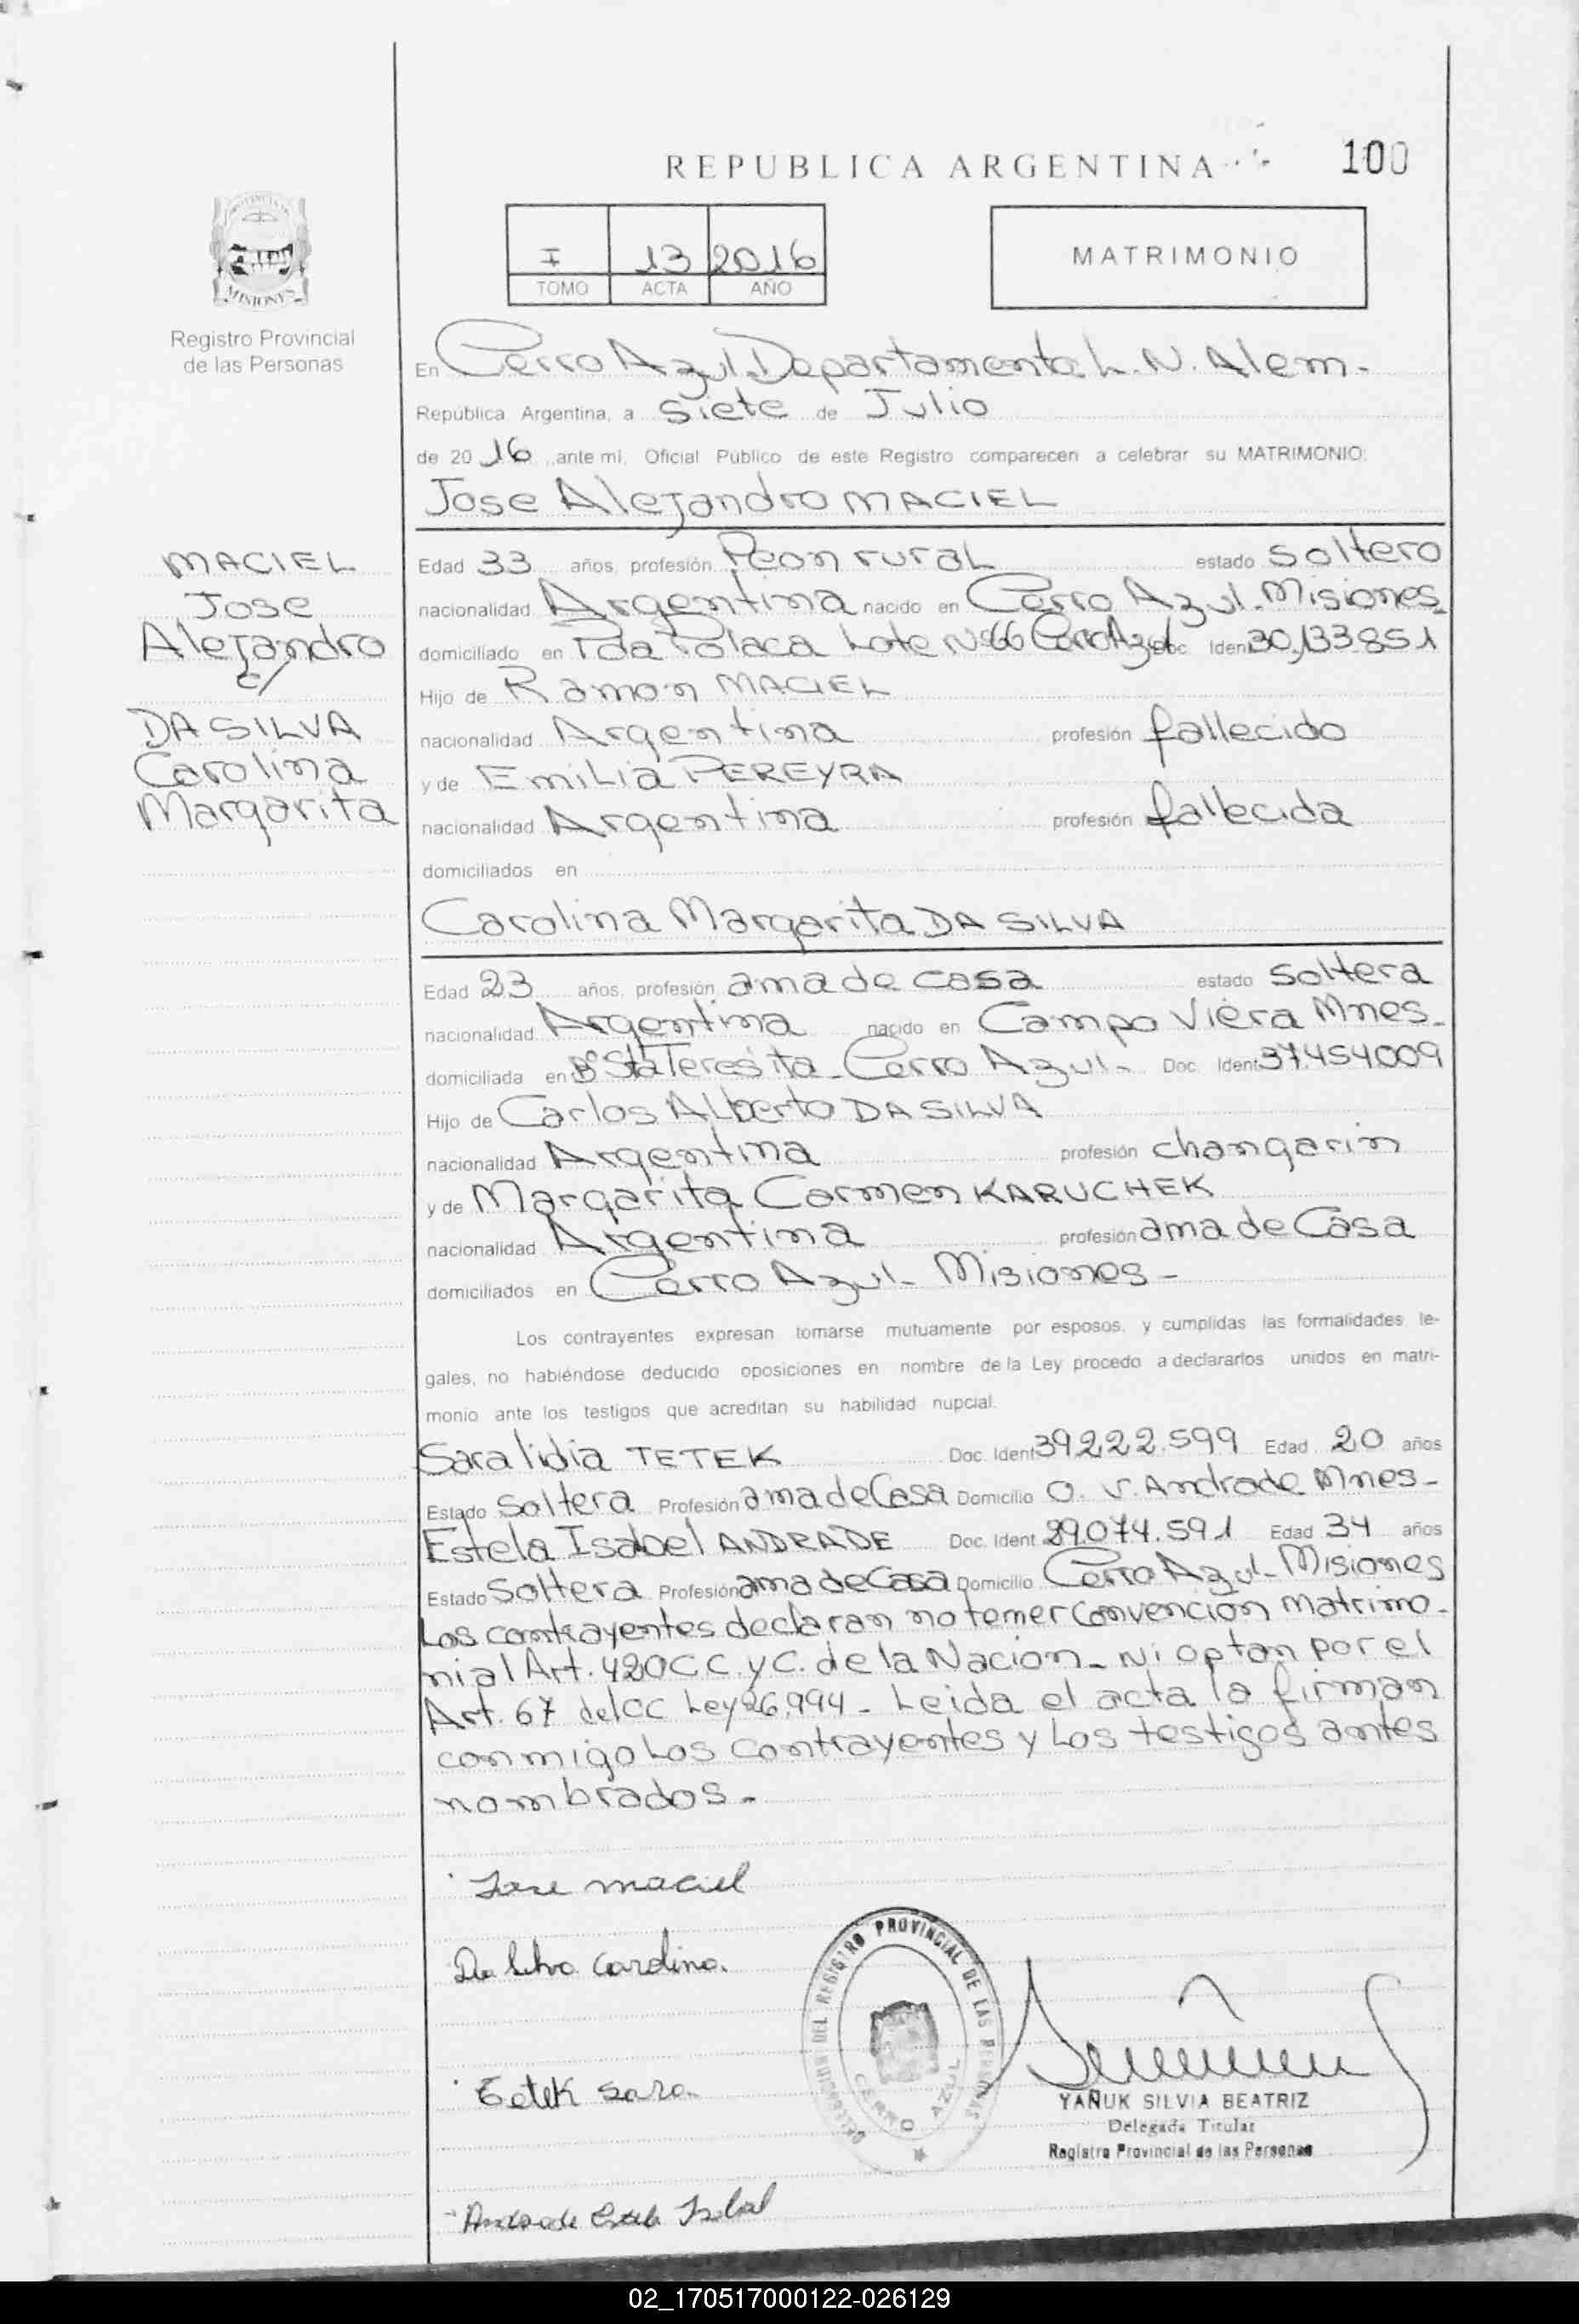 REPUBLICA ARGENTINA
100
PROVINCIA DE
MISIONES
Registro Provincial
de las Personas
I 13 2016
TOMO ACTA AÑO
MATRIMONIO
En Cerro Azul Departamento L. N. Alem.-
República Argentina, a Siete de Julio
de 20 16 ante mí, Oficial Público de este Registro comparecen a celebrar su MATRIMONIO:
Jose Alejandro MACIEL
MACIEL
Jose
Alejandro
c/
DA SILVA
Carolina
Margarita
Edad 33 años, profesión Peon rural estado Soltero
nacionalidad Argentina nacido en Cerro Azul - Misiones
domiciliado en Pda Polaca Lote Nº 66 Cerro Azul Doc Ident 30.133.851
Hijo de Ramon MACIEL
nacionalidad Argentina profesión fallecido
y de Emilia PEREYRA
nacionalidad Argentina profesión fallecida
domiciliados en
Carolina Margarita DA SILVA
Edad 23 años, profesión ama de casa estado Soltera
nacionalidad Argentina nacido en Campo Viera Mnes.
domiciliada en Bº Sta Teresita - Cerro Azul - Doc. Ident 37.454.009
Hijo de Carlos Alberto DA SILVA
nacionalidad Argentina profesión changarin
y de Margarita Carmen KARUCHEK
nacionalidad Argentina profesión ama de Casa
domiciliados en Cerro Azul - Misiones -
Los contrayentes expresan tomarse mutuamente por esposos, y cumplidas las formalidades le-
gales, no habiéndose deducido oposiciones en nombre de la Ley procedo a declararlos unidos en matri-
monio ante los testigos que acreditan su habilidad nupcial.
Sara lidia TETEK Doc. Ident 39.222.599 Edad 20 años
Estado Soltera Profesión ama de Casa Domicilio O. V. Andrade Mnes -
Estela Isabel ANDRADE Doc. Ident 29.074.591 Edad 34 años
Estado Soltera Profesión ama de Casa Domicilio Cerro Azul - Misiones
Los contrayentes declaran no tener Convención Matrimo-
nial Art. 420 C.C. y C. de la Nación - Ni optan por el
Art. 67 del CC Ley 26.994 - Leida el acta la firman
conmigo los contrayentes y los testigos antes
nombrados.-
Jose maciel
Da Silva Carolina.
Tetek Sara.
Andrade Estela Isabel
DELEGACION DEL REGISTRO PROVINCIAL DE LAS PERSONAS
CERRO AZUL
YAÑUK SILVIA BEATRIZ
Delegada Titular
Registro Provincial de las Personas
02_170517000122-026129